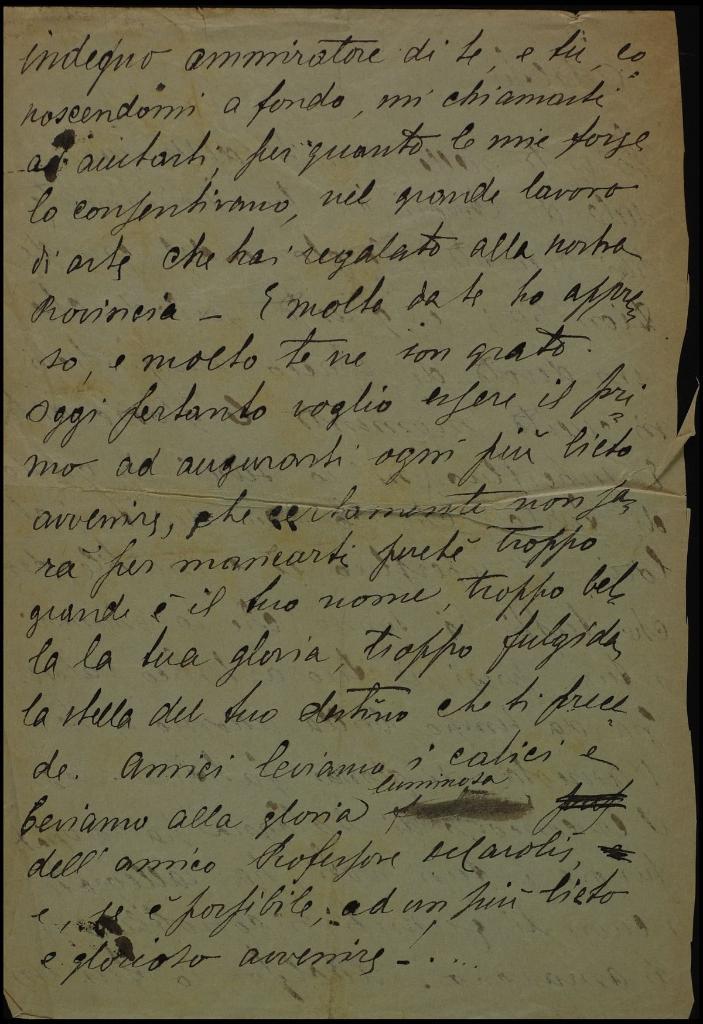 indegno ammiratore di te, e tu, co
noscendomi a fondo, mi chiamasti
ad aiutarti, per quanto le mie forze
lo consentivano, nel grande lavoro
di arte che hai regalato alla nostra
Provincia - E molto da te ho appre
so, e molto te ne son grato.
Oggi pertanto voglio essere il pri
mo ad augurarti ogni più lieto
avvenire, che certamente non sa
rà per mancarti perchè troppo
grande è il tuo nome, troppo bel
la la tua gloria, troppo fulgida
la stella del tuo destino che ti prece
de. Amici leviamo i calici e
beviamo alla gloria luminosa
dell'amico Professore DeCarolis,
e, se è possibile, ad un più lieto
e glorioso avvenire - . ...